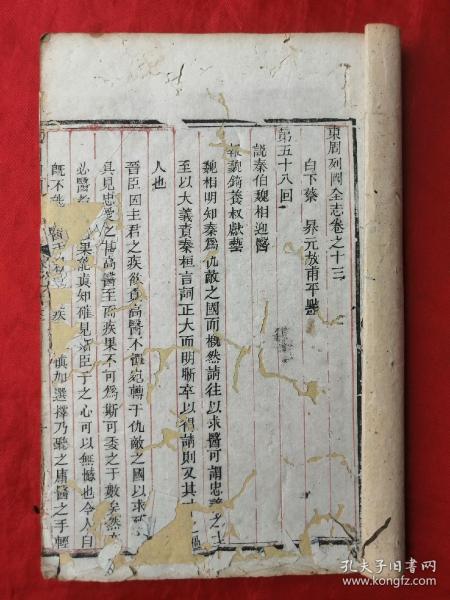 東周列國全志卷之十三
白下蔡 奡元放甫平點
第五十八回
說秦伯魏相迎醫
報魏錡養叔獻藝
魏相明知秦爲仇敵之國而慨然請往以求醫可謂忠
至以大義責秦桓言詞正大而明晰卒以得請則又其
人也
晉臣因主君之疾欲責高醫不憚宛轉于仇敵之國以求
具見忠愛之 高醫至而疾果不可爲斯可委之于數矣然
必醫 果能眞知確見 臣子之心可以無憾也今人自
旣不能 疾 愼加選擇乃聽之庸醫之手輕
孔夫子旧書网
www.kongfz.com